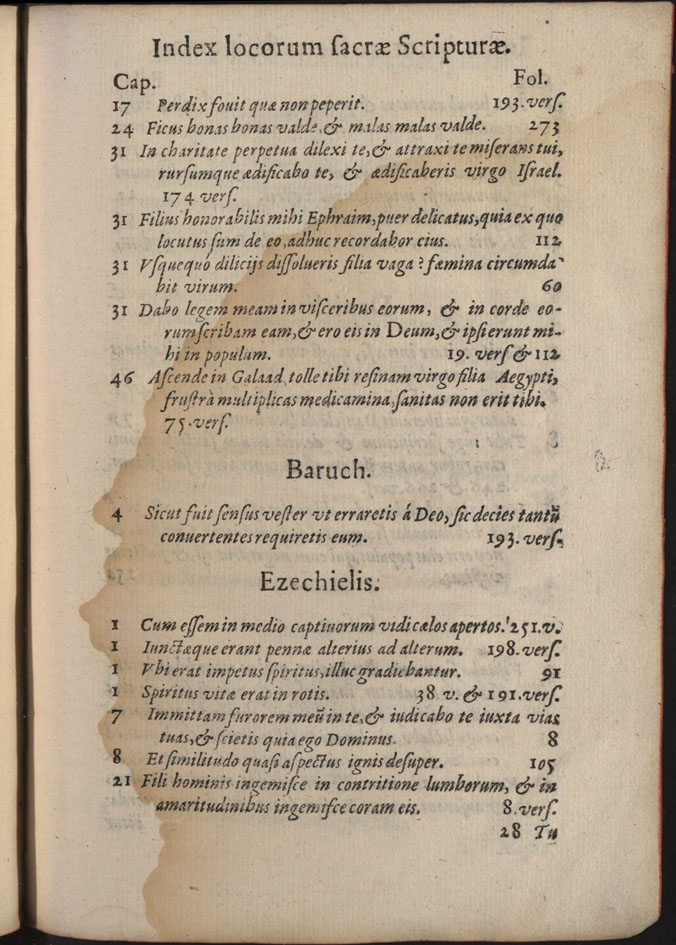 Index locorum ſacræ Scripturæ.
Cap. Fol.
17 Perdix fouit quæ non peperit. 193.verſ.
24 Ficus bonas bonas valde,& malas malas valde. 273
31 In charitate perpetua dilexi te,& attraxi te miſerans tui,
rurſumque ædificabo te, & ædificaberis virgo Iſrael.
174 verſ.
31 Filius honorabilis mihi Ephraim,puer delicatus,quia ex quo
locutus ſum de eo,adhuc recordabor eius. 112
31 Vſquequó dilicijs diſſolueris filia vaga? fæmina circumda
bit virum. 60
31 Dabo legem meam in viſceribus eorum, & in corde eo-
rumſcribam eam,& ero eis in Deum,& ipſi erunt mi-
hi in populum. 19. verſ & 112
46 Aſcende in Galaad,tolle tibi reſinam virgo filia Aegypti,
fruſtrà multiplicas medicamina,ſanitas non erit tibi.
75.verſ.
Baruch.
4 Sicut fuit ſenſus veſter vt erraretis á Deo,ſic decies tantū
conuertentes requiretis eum. 193.verſ.
Ezechielis.
1 Cum eſſem in medio captiuorum vidi cælos apertos. 251.v.
1 Iunctæque erant pennæ alterius ad alterum. 198.verſ.
1 Vbi erat impetus ſpiritus,illuc gradiebantur. 91
1 Spiritus vitæ erat in rotis. 38 v. & 191.verſ.
7 Immittam furorem meū in te,& iudicabo te iuxta vias
tuas,& ſcietis quia ego Dominus. 8
8 Et ſimilitudo quaſi aſpectus ignis deſuper. 105
21 Fili hominis ingemiſce in contritione lumborum, & in
amaritudinibus ingemiſce coram eis. 8.verſ.
28 Tu